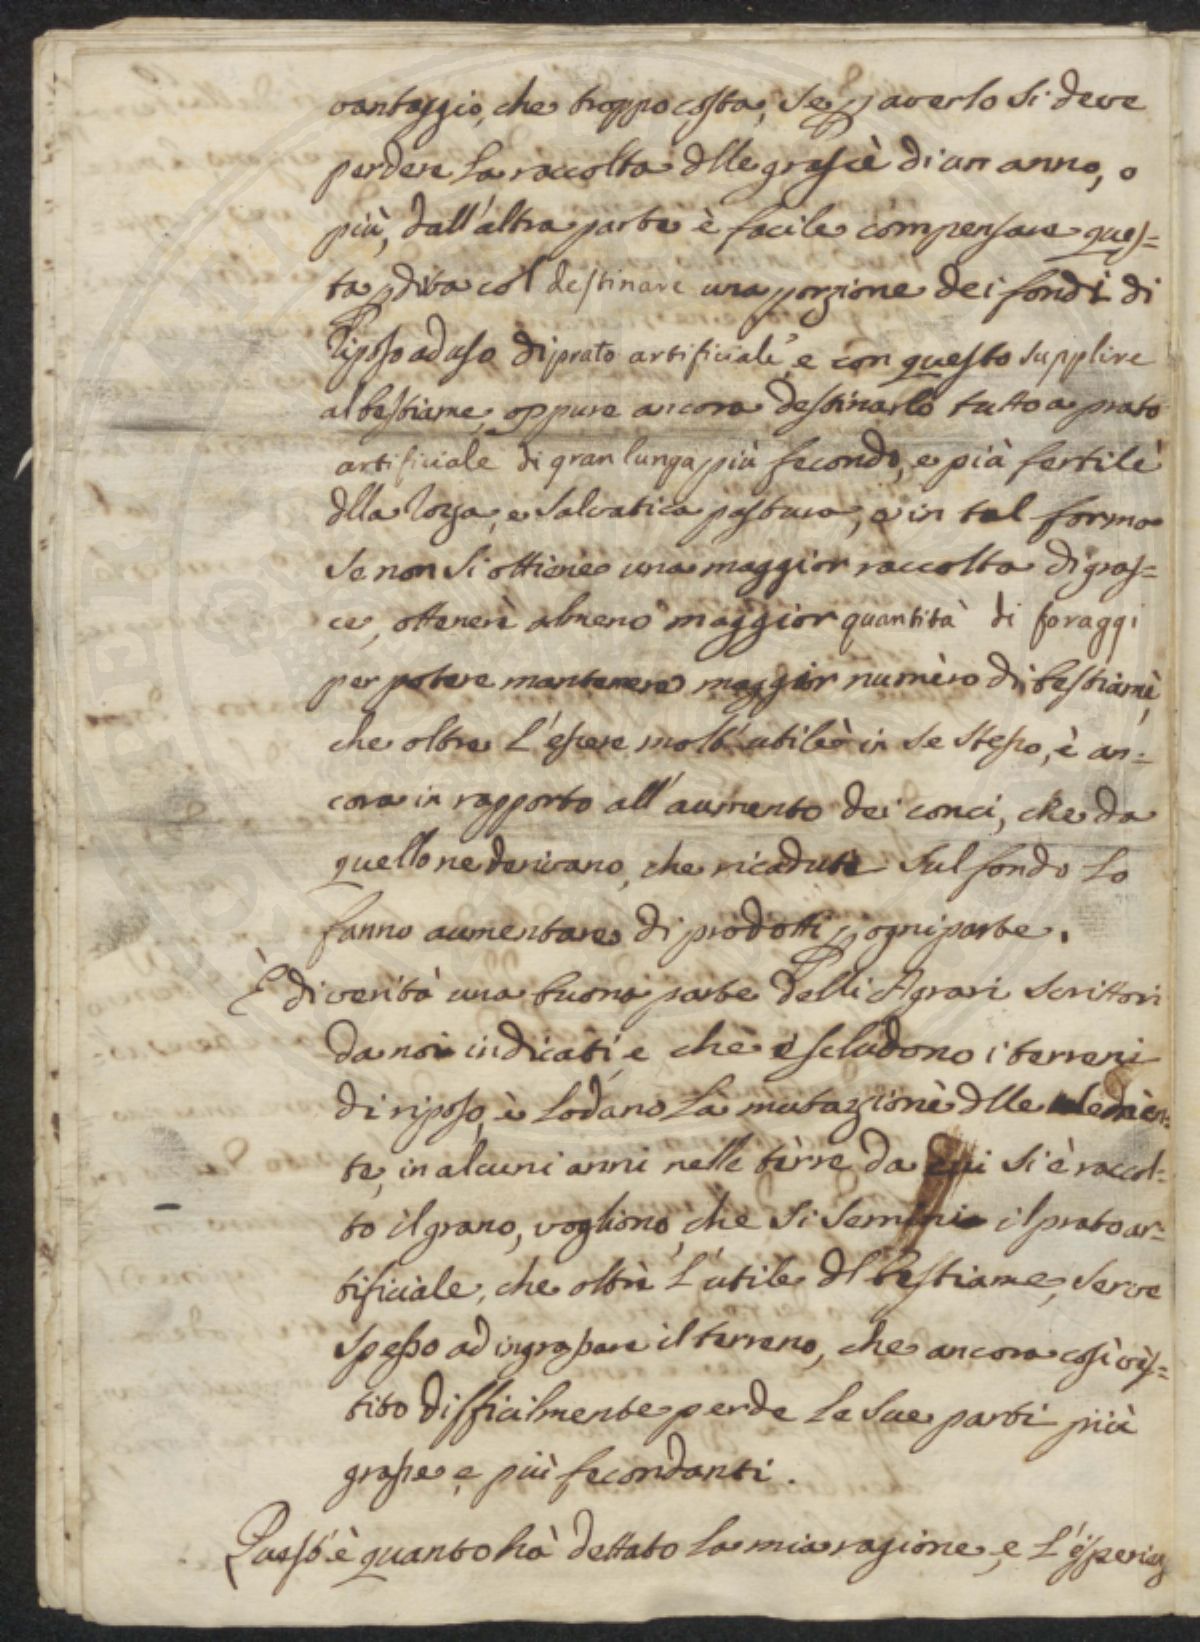 vantaggio, che troppo costa, se p averlo si deve
perdere la raccolta dlle grascie di un anno, o
più, dall'altra parte è facile compensare ques=
ta pdita col destinare una porzione dei fondi di
Riposo ad uso di prato artificiale, e con questo supplire
al bestiame, oppure ancora destinarlo tutto a prato
artificiale di gran lunga più fecondo, e più fertile
dlla rozza, e salvatica pastura, e in tal forma
se non si ottiene una maggior raccolta di gras=
ce, ottenere almeno maggior quantità di foraggi
per potere mantenere maggior numero di bestiame,
che oltre l'essere molt'utile in se stesso, è an=
cora in rapporto all'aumento dei conci, che da
quello ne derivano, che ricaduti sul fondo lo
fanno aumentare di prodotti p ogni parte.
È di verità una buona parte delli Agrari scrittori
da noi indicati, e che escludono i terreni
di riposo, e lodano la mutazione dlle
te, in alcuni anni nelle terre da cui si è raccol=
to il grano, vogliono, che si semini il prato ar=
tificiale, che oltre l'utile dl bestiame, serve
spesso ad ingrassare il terreno, che ancora così vès=
tito difficilmente perde le sue parti più
grasse e più fecondanti.
Quest'è quanto hà dettato la mia ragione, e l'esperienz